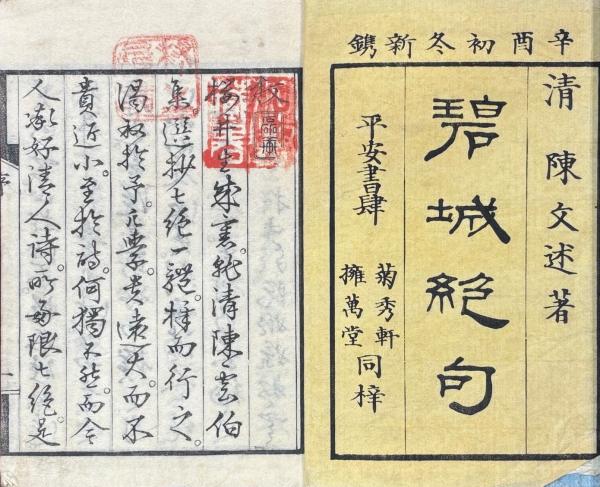 辛酉初冬新鐫
清 陳文述著
碧城絕句
平安書肆
菊秀軒
擁萬堂
同梓
敘
櫻井生来裏。鈋清陳雲伯
集選抄七絕一體。梓而行之。
謁敘於予。凡學貴遠大。而不
貴近小。至於詩。何獨不然。而今
人歡好清人詩。所每限七絕。是
序
一